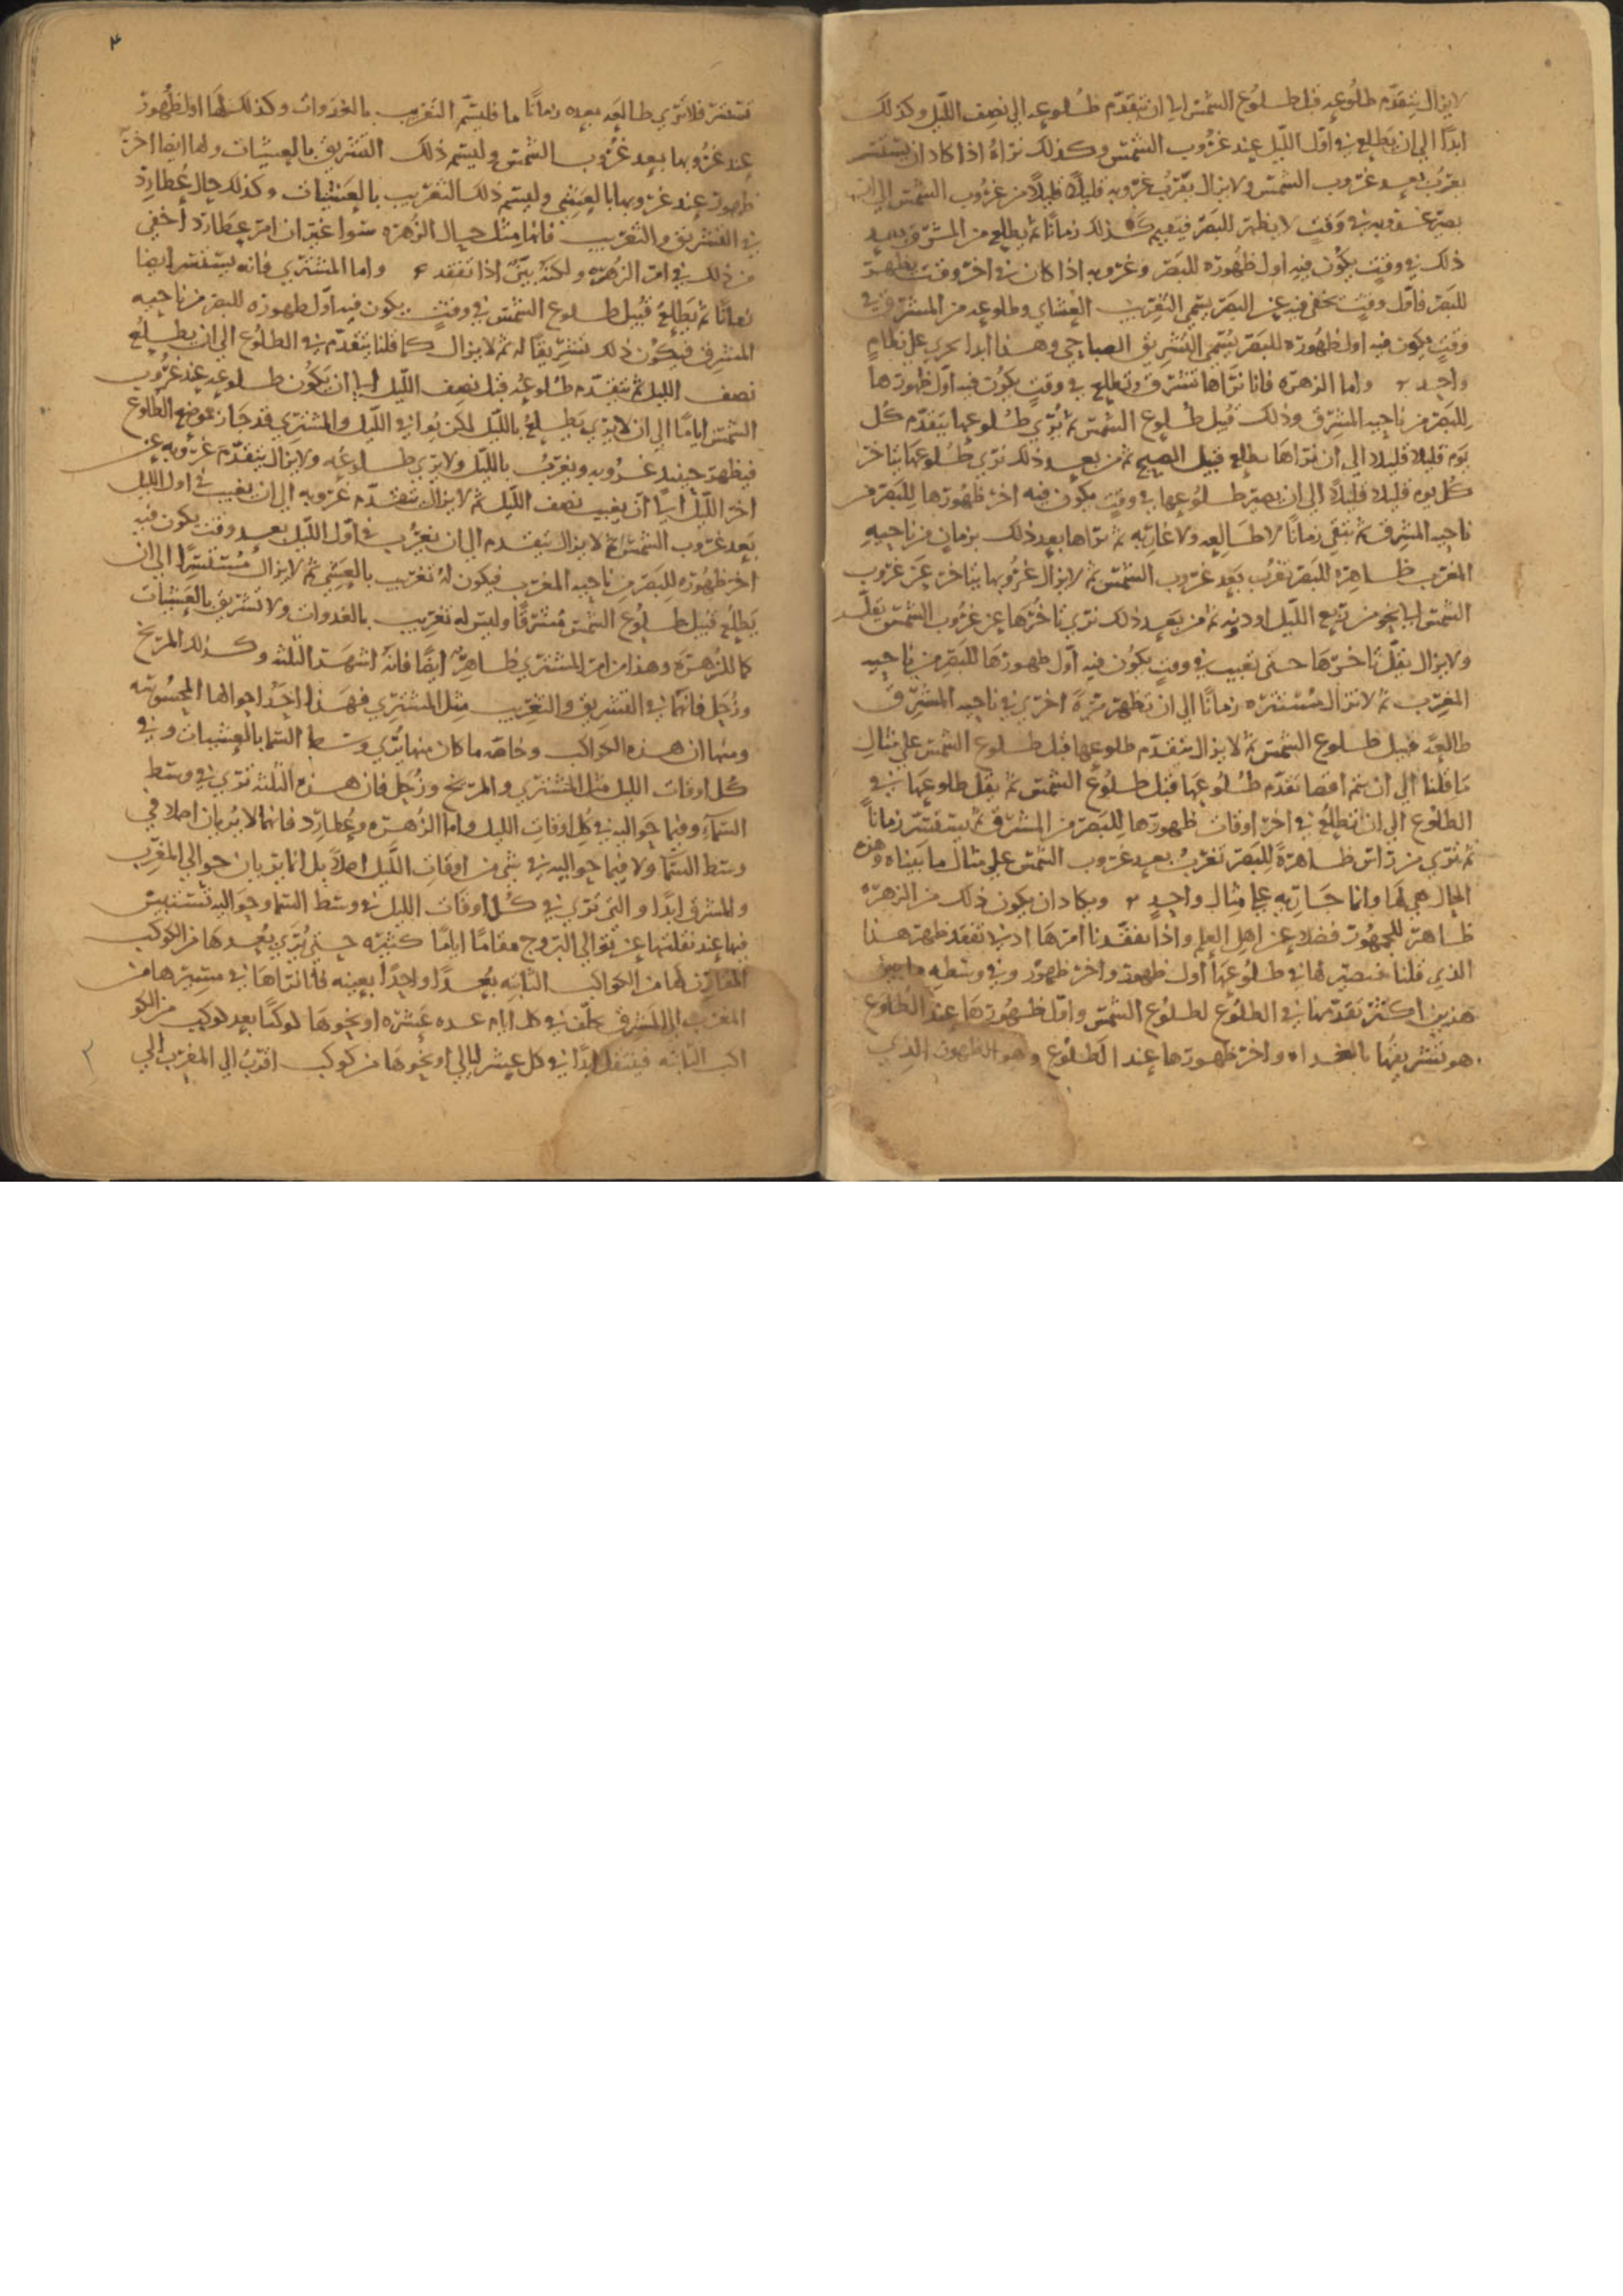 لا يزال يتقدم طلوعه قبل طلوع الشمس الى ان يتقدم طلوعه الى نصف الليل وكذلك
ابدا الى ان يطلع في اول الليل عند غروب الشمس وكذلك نراه اذا كاد ان يستتر
يغرب بعيد غروب الشمس ولا يزال يقرب غروبه قليلا قليلا من غروب الشمس الى ان
يصير غروبه في وقت لا يظهر للبصر فيقيم كذلك زمانا ثم يطلع من المشرق بعيد
ذلك في وقت يكون فيه اول ظهوره للبصر وغروبه اذا كان في اخر وقت يظهر
للبصر فاول وقت يخفى فيه عن البصر يسمى التغريب العشاي وطلوعه من المشرق في
وقت يكون فيه اول ظهوره للبصر يسمى التشريق الصباحي وهذا ابدا يجري على نظام
واحد واما الزهره فانا نراها تشرق وتطلع في وقت يكون فيه اول ظهورها
للبصر من ناحيه المشرق وذلك قبيل طلوع الشمس ثم يرى طلوعها يتقدم كل
يوم قليلا قليلا الى ان نراها تطلع قبيل الصبح ثم من بعيد ذلك نرى طلوعها يتاخر
كل يوم قليلا قليلا الى ان يصير طلوعها في وقت يكون فيه اخر ظهورها للبصر من
ناحيه المشرق ثم تبقى زمانا لا طالعه ولا غاربه ثم نراها بعد ذلك بزمان من ناحيه
المغرب ظاهره للبصر تغرب بعيد غروب الشمس ثم لا يزال غروبها يتاخر عن غروب
الشمس الى نحو من ربع الليل او دونه ثم من بعيد ذلك نرى تاخرها عن غروب الشمس يقل
ولا يزال يقل تاخرها حتى تغيب في وقت يكون فيه اول ظهورها للبصر من ناحيه
المغرب ثم لا تزال مستتره زمانا الى ان تظهر مره اخرى في ناحيه المشرق
طالعه قبيل طلوع الشمس ثم لا يزال يتقدم طلوعها قبل طلوع الشمس على مثال
ما قلنا الى ان يتم اقصا تقدم طلوعها قبل طلوع الشمس ثم يقل طلوعها في
الطلوع الى ان تطلع في اخر اوقات ظهورها للبصر من المشرق ثم يستتر زمانا
ثم نرى من راس ظاهرة للبصر تغرب بعيد غروب الشمس على مثال ما بيناه وهذه
الحال هي لها وانما جاريه على مثال واحد ويكاد ان يكون ذلك من الزهره
ظاهر للجمهور فضلا عن اهل العلم واذا تفقدنا امرها ادنى تفقد ظهر هذا
الذي قلنا فيصير لها في طلوعها اول ظهور واخر ظهور وفي وسطه ما بين
هذين اكثر تقدمها في الطلوع لطلوع الشمس واول ظهورها عند الطلوع
هو تشريقها بالغداه واخر ظهورها عند الطلوع وهو الظهور الذي
٣
تستتر فلا ترى طالعه بعده زمانا ما فليسم التغريب بالغدوات وكذلك لها اول ظهور
عند غروبها بعيد غروب الشمس وليسم ذلك التشريق بالعشيات ولها ايضا اخر
ظهور عند غروبها بالعشي وليسم ذلك التغريب بالعشيات وكذلك حال عطارد
في التشريق والتغريب فانما مثل حال الزهره سوا غير ان امر عطارد اخفى
من ذلك في امر الزهره ولكنه بين اذا تفقد واما المشتري فانه يستتر ايضا
زمانا ثم يطلع قبيل طلوع الشمس في وقت يكون فيه اول ظهوره للبصر من ناحيه
المشرق فيكون ذلك تشريقا له ثم لا يزال كما قلنا يتقدم في الطلوع الى ان يطلع
نصف الليل ثم يتقدم طلوعه قبل نصف الليل الى ان يكون طلوعه عند غروب
الشمس اياما الى ان لا يرى يطلع بالليل لكن يوافي الليل والمشتري قد جاز موضع الطلوع
فيظهر حينيذ غروبه ويغرب بالليل ولا يرى طلوعه ولا يزال يتقدم غروبه عن
اخر الليل الى ان يغيب نصف الليل ثم لا يزال يتقدم غروبه الى ان يغيب في اول الليل
بعد غروب الشمس ثم لا يزال يتقدم الى ان يغرب في اول الليل بعيد وقت يكون فيه
اخر ظهوره للبصر من ناحيه المغرب فيكون له تغريب بالعشي ثم لا يزال مستترا الى ان
يطلع قبيل طلوع الشمس مشرقا وليس له تغريب بالغدوات ولا تشريق بالعشيات
كما للزهره وهذا من امر المشتري ظاهر ايضا فانه اشهر الثلثه وكذلك المريخ
وزحل فانهما في التشريق والتغريب مثل المشتري فهذا احد احوالها المحسوسه
ومنها ان هذه الكواكب وخاصه ما كان منها يرى وسط السما بالعشيات وفي
كل اوقات الليل مثل المشتري والمريخ وزحل فان هذه الثلثه ترى في وسط
السماء وفيما حواليه في كل اوقات الليل واما الزهره وعطارد فانهما لا يريان اصلا في
وسط السما ولا فيما حواليه في شي من اوقات الليل اصلا بل انما يريان حوالي المغرب
والمشرق ابدا والتي ترى في كل اوقات الليل في وسط السما وحواليه تستبين
فيها عند نقلتها عن توالي البروج مقاما اياما كثيره حتى يرى بعدها من الكوكب
المقارن لها من الكواكب الثابته بعدا واحدا بعينه فانا نراها في مسيرها من
المغرب الى المشرق تخلف في كل ايام عده عشره او نحوها كوكبا بعد كوكب من الكو
اكب الثابته فينتقل ابدا في كل عشر ليالي او نحوها من كوكب اقرب الى المغرب الى
٢